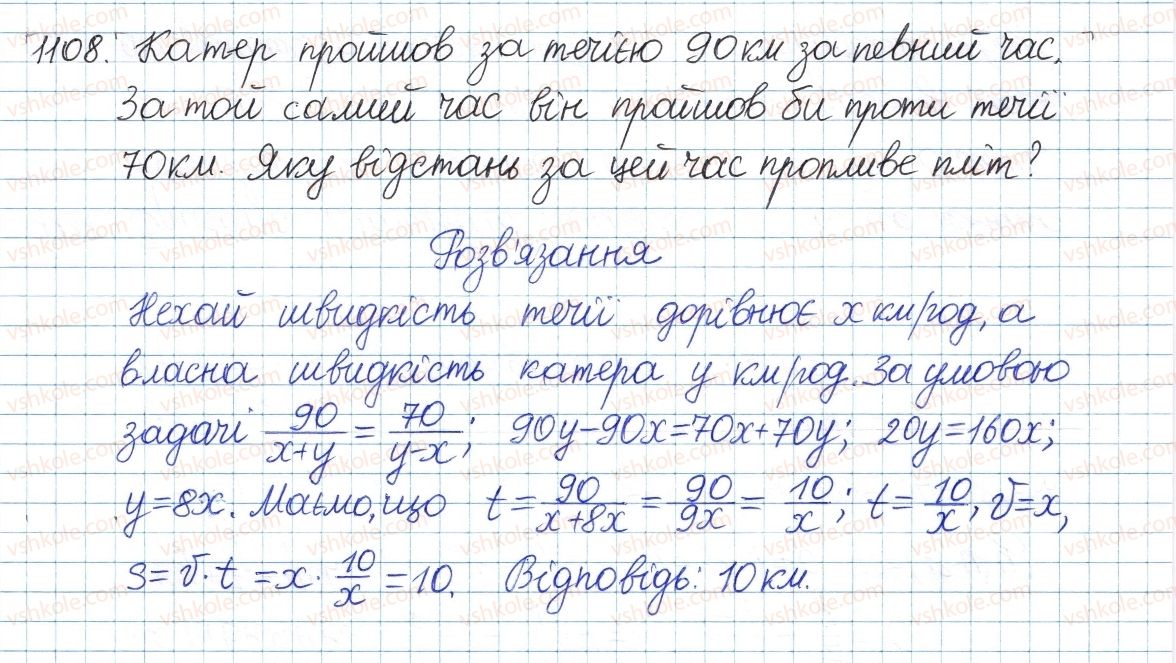 1108. Катер пройшов за течією 90 км за певний час.
За той самий час він пройшов би проти течії
70 км. Яку відстань за цей час пропливе пліт?
Розв'язання
Нехай швидкість течії дорівнює x км/год, а
власна швидкість катера y км/год. За умовою
задачі 90/(x+y) = 70/(y-x); 90y-90x=70x+70y; 20y=160x;
y=8x. Маємо, що t = 90/(x+8x) = 90/9x = 10/x; t = 10/x, v=x,
s = v·t = x · 10/x = 10. Відповідь: 10 км.